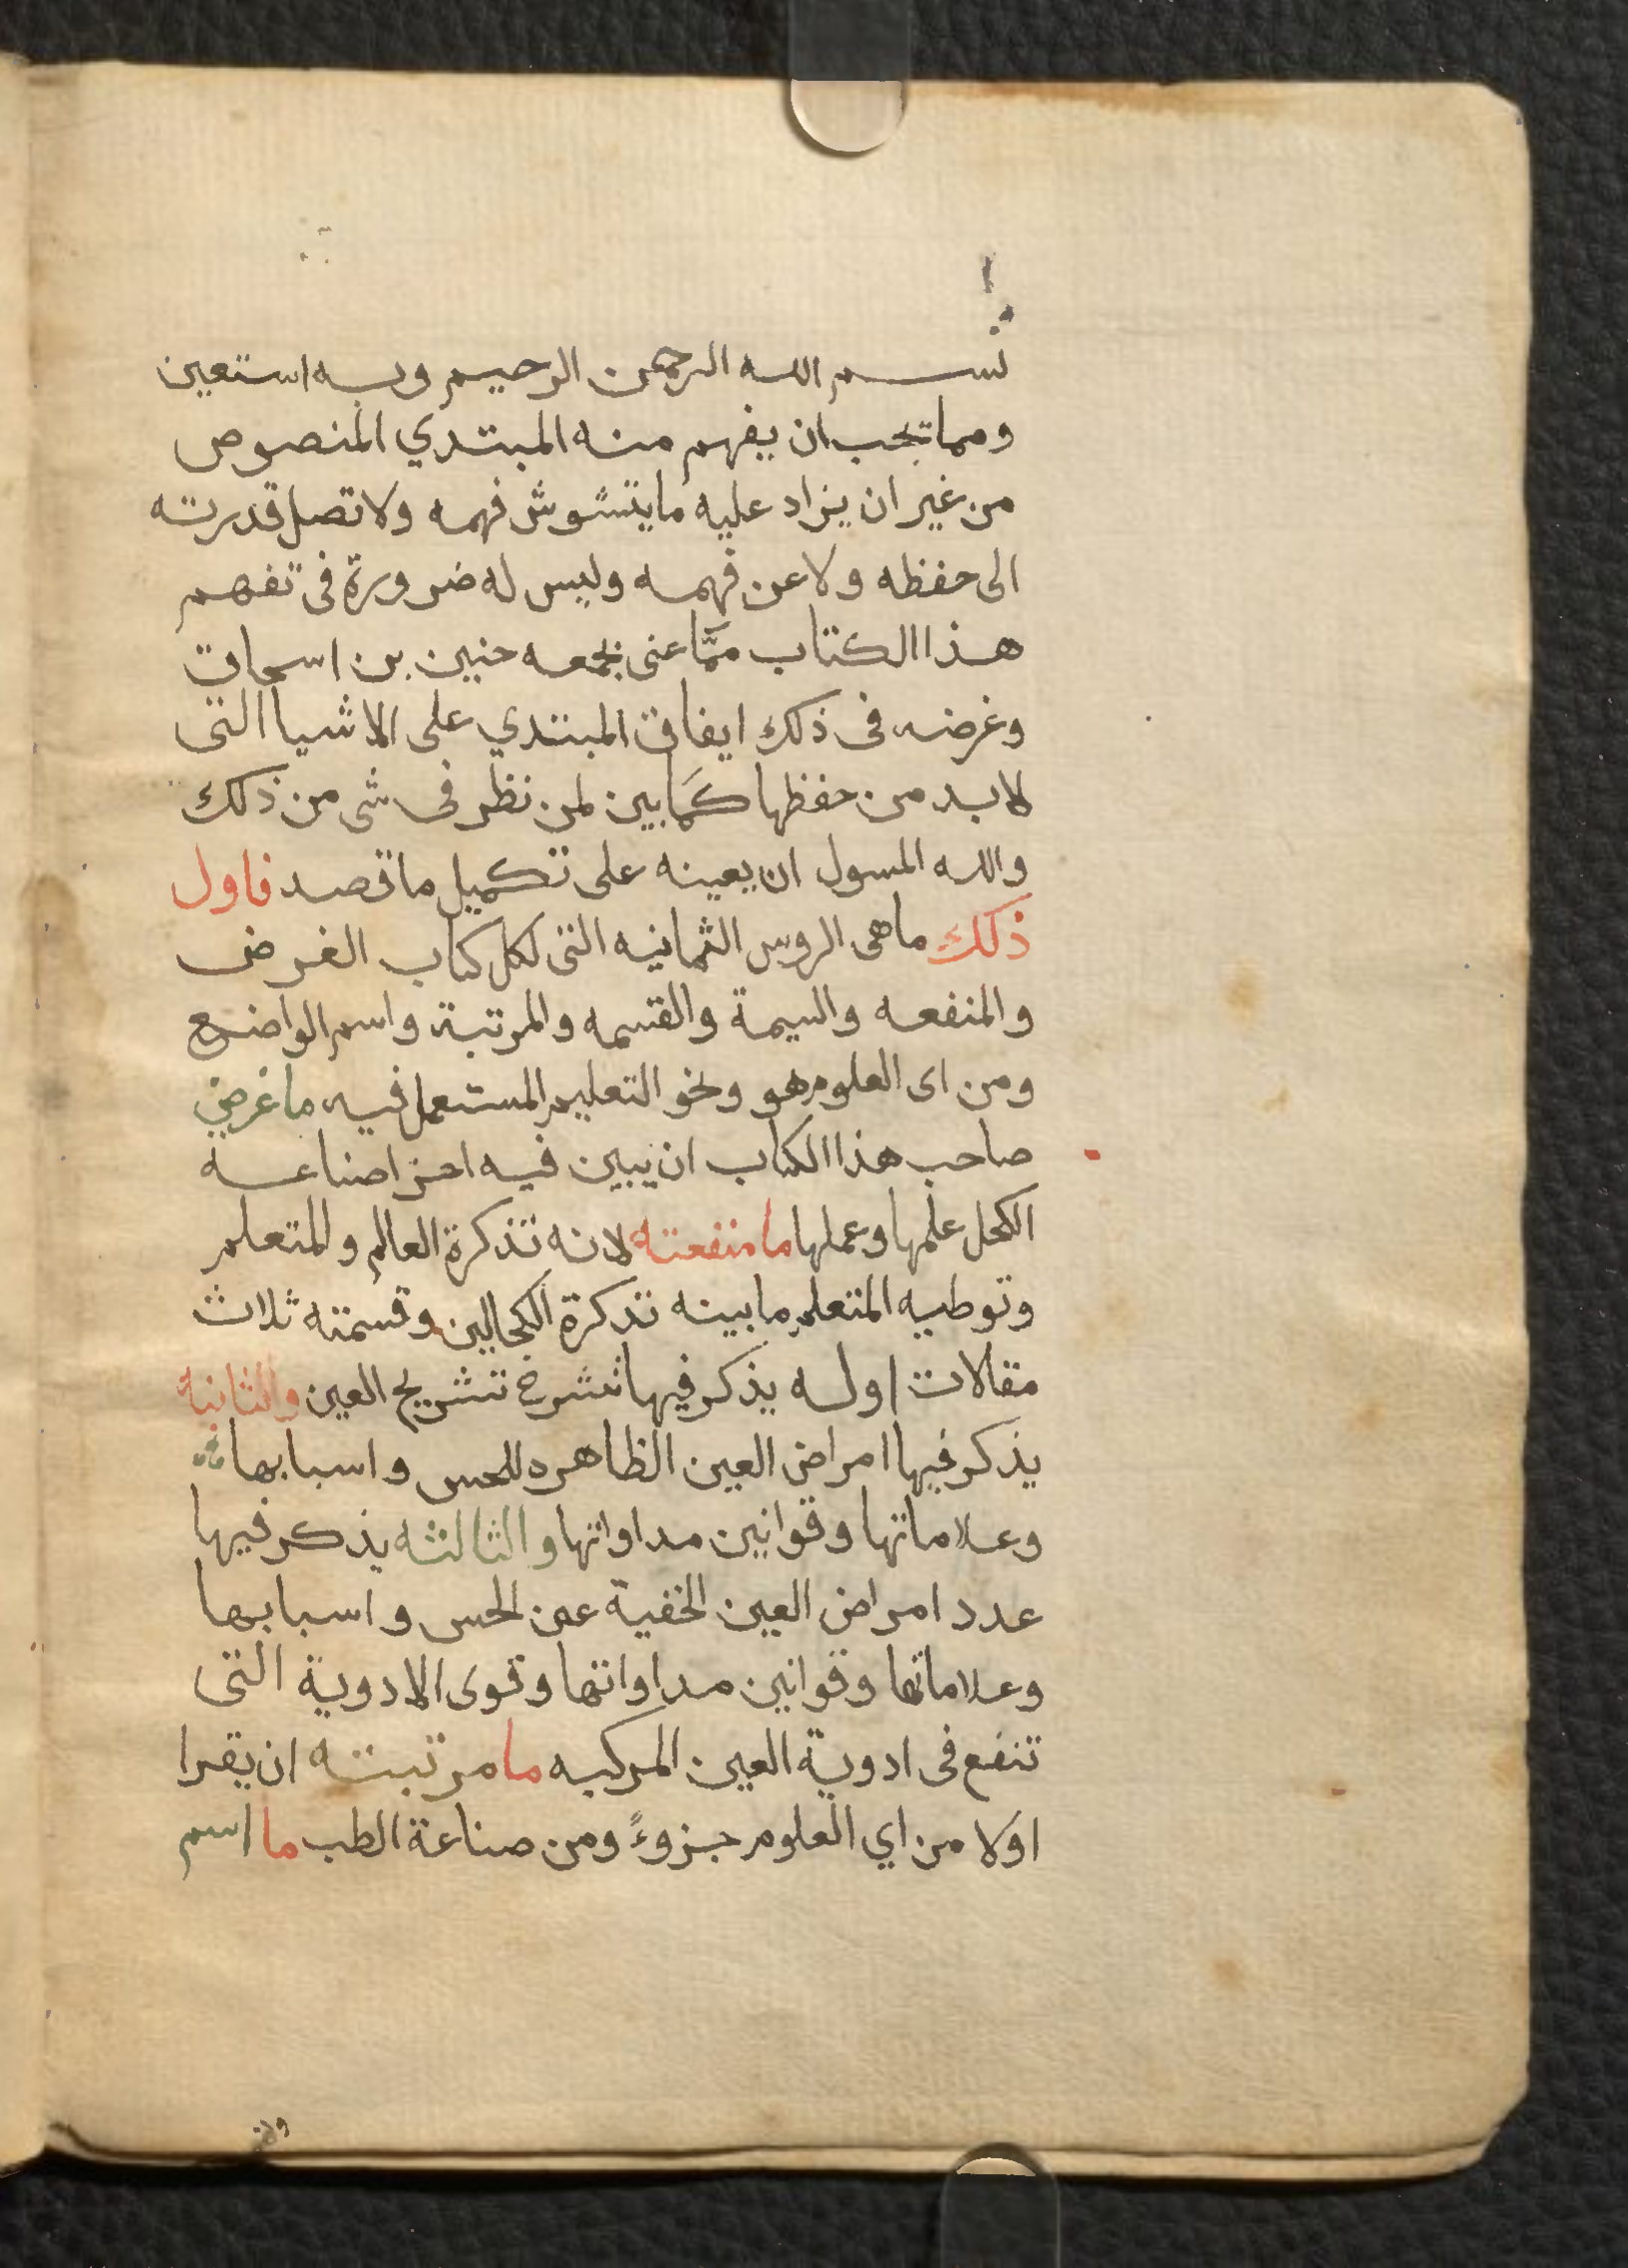 بسم الله الرحمن الرحيم وبه استعين
ومما تجب ان يفهم منه المبتدي المنصوص
من غير ان يزاد عليه ما يتشوش فهمه ولا تصل قدرته
الى حفظه ولا عن فهمه وليس له ضرورة في تفهم
هذا الكتاب ممّا عنى بجمعه حنين بن اسحاق
وغرضه في ذلك ايفاق المبتدي على الاشيا التى
لا بد من حفظها كما بين لمن نظر في شى من ذلك
والله المسول ان يعينه على تكميل ما قصد فاول
ذلك ماهى الروس الثمانيه التى لكل كتاب الغرض
والمنفعه والسيمة والقسمه والمرتبة واسم الواضع
ومن اى العلوم هو ونحو التعليم المستعمل فيه ما غرض
صاحب هذا الكتاب ان يبين فيه اجزا صناعة
الكحل علمها وعملها ما منفعته لانه تذكرة العالم والمتعلم
وتوطيه المتعلم ما بينه تدكرة الكحالين وقسمته ثلاث
مقالات اوله يذكر فيها شرح تشريح العين والثانية
يذكر فيها امراض العين الظاهره للحس واسبابها
وعلاماتها وقوانين مداواتها والثالثه يذكر فيها
عدد امراض العين الخفية عن الحس واسبابها
وعلاماتها وقوانين مداواتها وقوى الادوية التى
تنفع فى ادوية العين المركبه ما مرتبته ان يقرا
اولا من اي العلوم جزوءً ومن صناعة الطب ما اسم